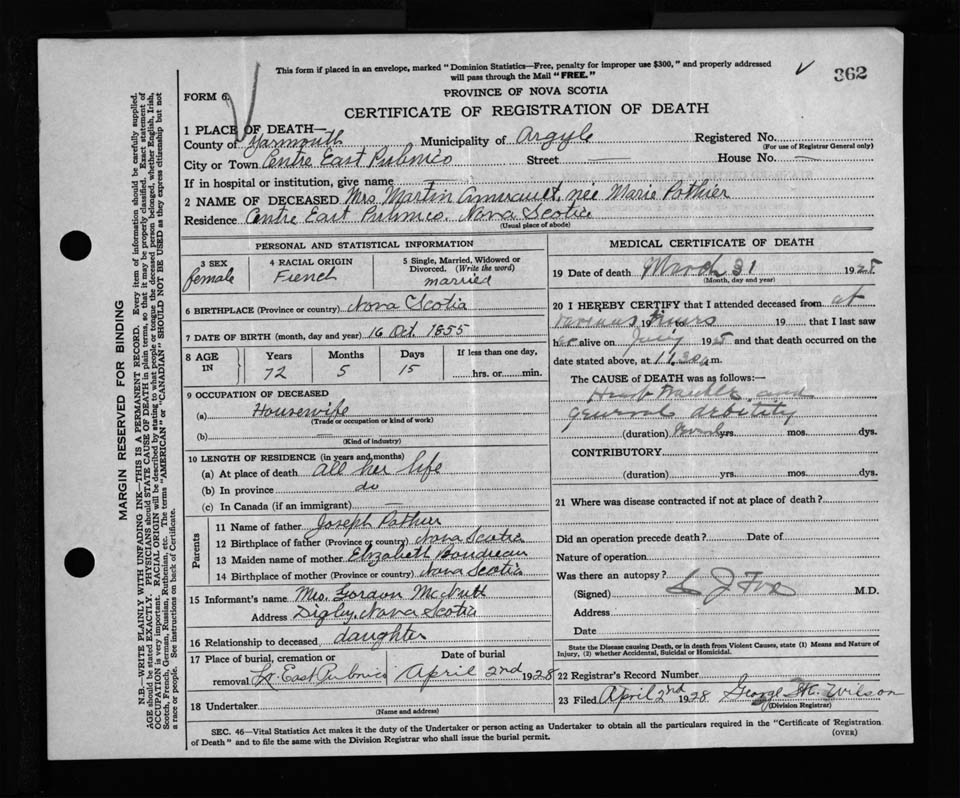 This form if placed in an envelope, marked "Dominion Statistics—Free, penalty for improper use $300," and properly addressed
will pass through the Mail "FREE."
362
PROVINCE OF NOVA SCOTIA
FORM 6.
CERTIFICATE OF REGISTRATION OF DEATH
1 PLACE OF DEATH—
County of Yarmouth Municipality of Argyle Registered No.
(For use of Registrar General only)
City or Town Centre East Pubnico Street — House No. —
If in hospital or institution, give name
2 NAME OF DECEASED Mrs. Martin Amirault, née Marie Pothier
Residence Centre East Pubnico. Nova Scotia
(Usual place of abode)
PERSONAL AND STATISTICAL INFORMATION
3 SEX
female
4 RACIAL ORIGIN
French
5 Single, Married, Widowed or
Divorced. (Write the word)
married
6 BIRTHPLACE (Province or country) Nova Scotia
7 DATE OF BIRTH (month, day and year) 16 Oct. 1855
8 AGE IN
Years Months Days If less than one day,
72 5 15 hrs. or min.
9 OCCUPATION OF DECEASED
(a) Housewife
(Trade or occupation or kind of work)
(b) —
(Kind of industry)
10 LENGTH OF RESIDENCE (in years and months)
(a) At place of death all her life
(b) In province do
(c) In Canada (if an immigrant) —
Parents
11 Name of father Joseph Pothier
12 Birthplace of father (Province or country) Nova Scotia
13 Maiden name of mother Elizabeth Boudreau
14 Birthplace of mother (Province or country) Nova Scotia
15 Informant's name Mrs. Gordon McNutt
Address Digby, Nova Scotia
16 Relationship to deceased daughter
17 Place of burial, cremation or Date of burial
removal Lr. East Pubnico April 2nd 1928
18 Undertaker
(Name and address)
MEDICAL CERTIFICATE OF DEATH
19 Date of death March 31 1928
(Month, day and year)
20 I HEREBY CERTIFY that I attended deceased from at
various times 19 to 19 that I last saw
her alive on 19 and that death occurred on
date stated above, at 11.30 a m.
The CAUSE OF DEATH was as follows:—
Heart and
general debility
(duration) yrs. mos. dys.
CONTRIBUTORY
(duration) yrs. mos. dys.
21 Where was disease contracted if not at place of death?
Did an operation precede death? Date of
Nature of operation
Was there an autopsy?
(Signed) J Fox M.D.
Address
Date
State the Disease causing Death, or in death from Violent Causes, state (1) Means and Nature of
Injury, (2) whether Accidental, Suicidal or Homicidal.
22 Registrar's Record Number
23 Filed April 2nd 1928 George Wilson
(Division Registrar)
SEC. 46—Vital Statistics Act makes it the duty of the Undertaker or person acting as Undertaker to obtain all the particulars required in the "Certificate of Registration
of Death" and to file the same with the Division Registrar who shall issue the burial permit.
(OVER)
MARGIN RESERVED FOR BINDING
N.B.—WRITE PLAINLY WITH UNFADING INK—THIS IS A PERMANENT RECORD. Every item of information should be carefully supplied.
AGE should be stated EXACTLY. PHYSICIANS should STATE CAUSE OF DEATH in plain terms, so that it may be properly classified. Exact statement of
OCCUPATION is very important. RACIAL ORIGIN will be described by stating to what people or tongue the deceased person belonged, whether English, Irish,
Scotch, French, German, Russian, Ruthenian, etc. The terms "AMERICAN" or "CANADIAN" SHOULD NOT BE USED as they express citizenship but not
a race or people. See instructions on back of Certificate.